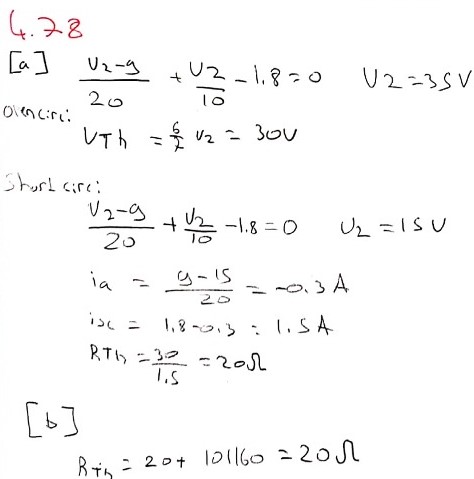 4.78
[a] V2-9/20 + V2/10 - 1.8 = 0 V2 = 35V
Open circ:
VTh = 6/7 V2 = 30V
Short circ:
V2-9/20 + V2/10 - 1.8 = 0 V2 = 15V
ia = 9-15/20 = -0.3 A
isc = 1.8-0.3 = 1.5A
RTh = 30/1.5 = 20Ω
[b]
RTh = 20+ 10||60 = 20Ω